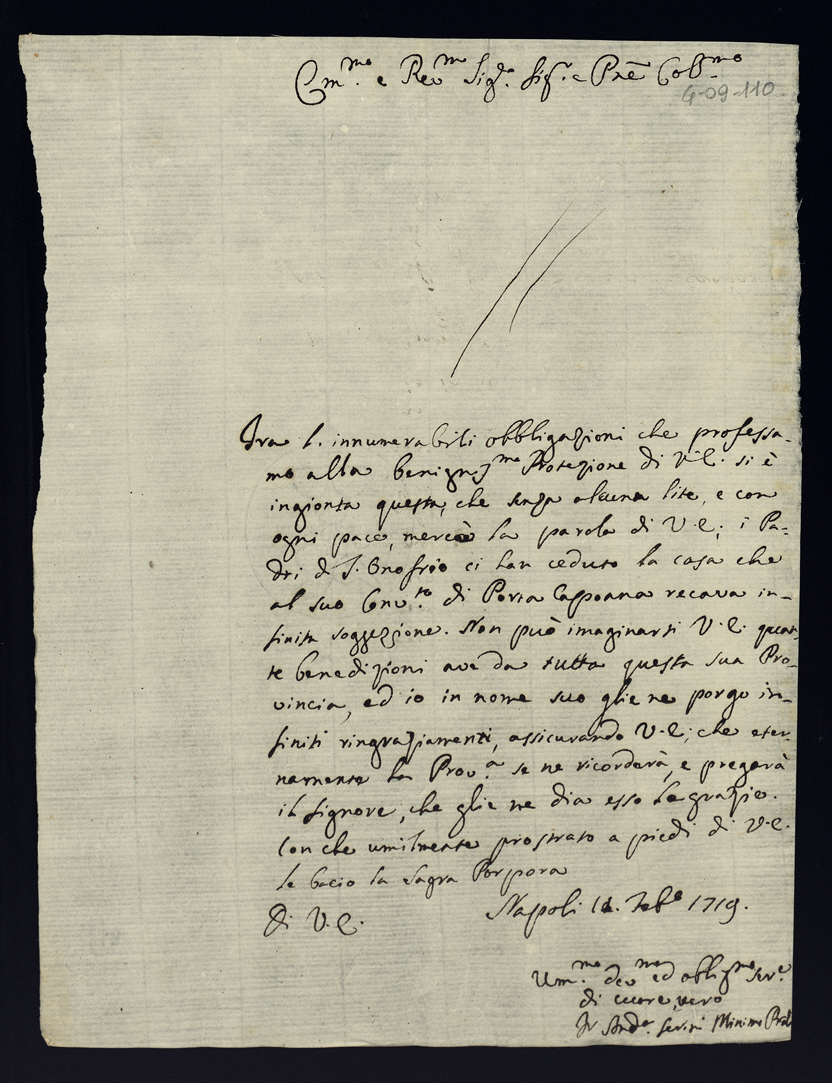 Em.mo e Rev.mo Sig.e Sig.e e Prē Col.mo
4-09-110
Fra l'innumerabili obbligazioni che professa-
mo alla benign.ma Protezione di V.E. si è
ingionta questa, che senza alcuna lite, e con
ogni pace, mercè la parola di V.E; i Pa-
dri di S. Onofrio ci han ceduto la casa che
al suo Conv.to di Porta Capoana recava in-
finita soggezzione. Non può imaginarsi V.E. quan-
te benedizioni ave da tutta questa sua Pro-
vincia, ed io in nome suo glie ne porgo in-
finiti ringraziamenti, assicurando V.E; che eter-
namente la Prov.a se ne ricorderà, e pregarà
il Signore, che glie ne dia esso le grazie.
Con che umilmente prostrato a piedi di V.E.
le bacio la Sagra Porpora
Di V.E. Napoli Feb.o 1719.
Um.mo dev.mo ed obblig.mo Ser.e
di cuore, vero
Fr And.a Serini Minimo